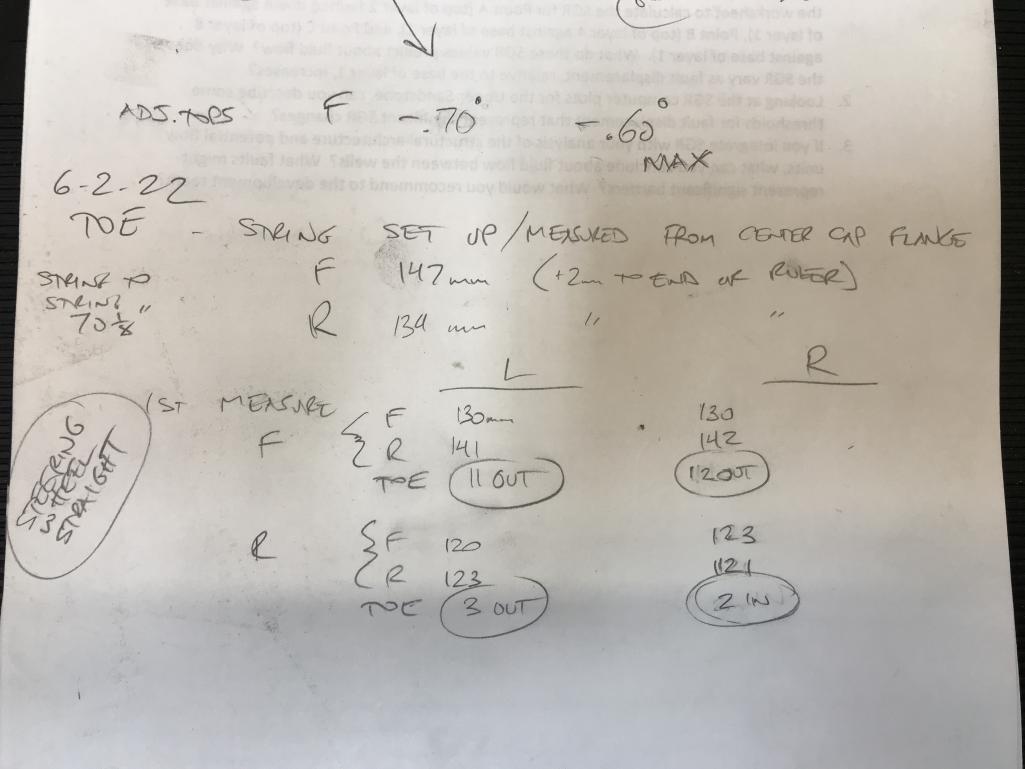 ADJ. TOPS F -.70° -.60°
MAX
6-2-22
TOE - STRING SET UP/MEASURED FROM CENTER CAP FLANGE
STRING TO STRING 70 1/8" F 147mm (+2mm TO END OF RULER)
R 134 mm " "
L R
1ST MEASURE
F { F 130mm 130
R 141 142
TOE 11 OUT 12 OUT
STEERING WHEEL STRAIGHT
R { F 120 123
R 123 121
TOE 3 OUT 2 IN